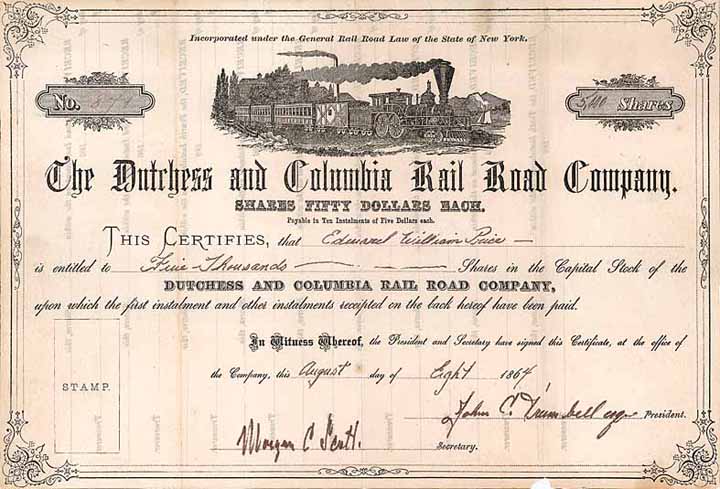 Incorporated under the General Rail Road Law of the State of New York.
No.
Shares
The Dutchess and Columbia Rail Road Company.
SHARES FIFTY DOLLARS EACH.
Payable in Ten Instalments of Five Dollars each.
THIS CERTIFIES, that Edward William Price
is entitled to Five Thousands Shares in the Capital Stock of the
DUTCHESS AND COLUMBIA RAIL ROAD COMPANY,
upon which the first instalment and other instalments receipted on the back hereof have been paid.
In Witness Whereof, the President and Secretary have signed this Certificate, at the office of
the Company, this August day of Eight 1864
STAMP.
John C. Trumbell esqr President.
Morgan C Scott.
Secretary.